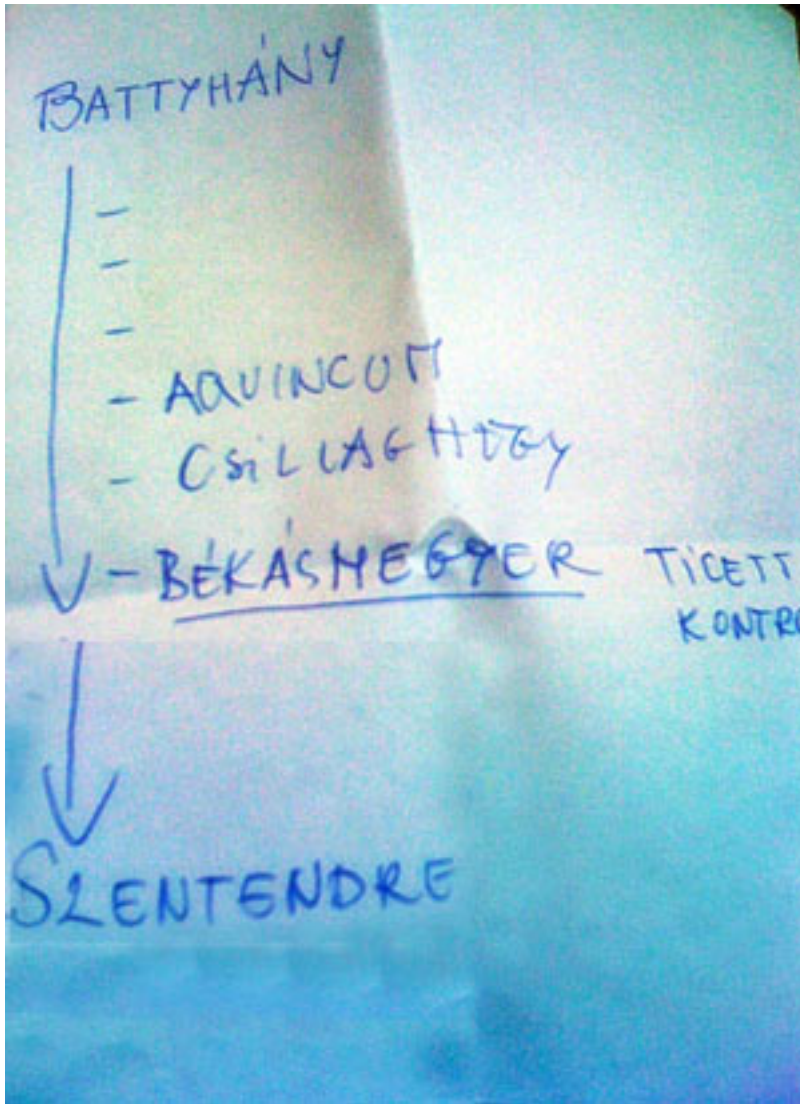 BATTYHÁNY
-
-
-
- AQUINCUM
- CSILLAGHEGY
- BÉKÁSMEGYER TICETT
KONTRO
SZENTENDRE